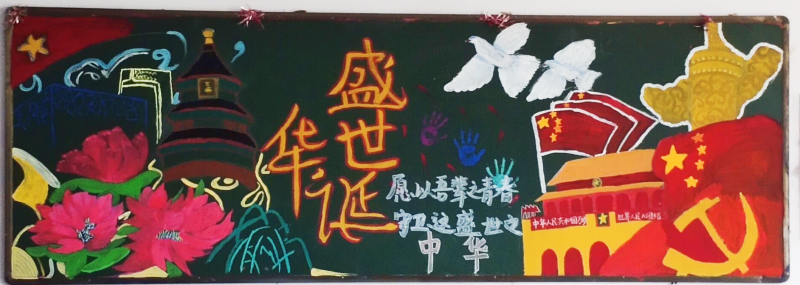 盛世
华诞
愿以吾辈之青春
守卫这盛世之
中华
中华人民共和国
世界人民大团结